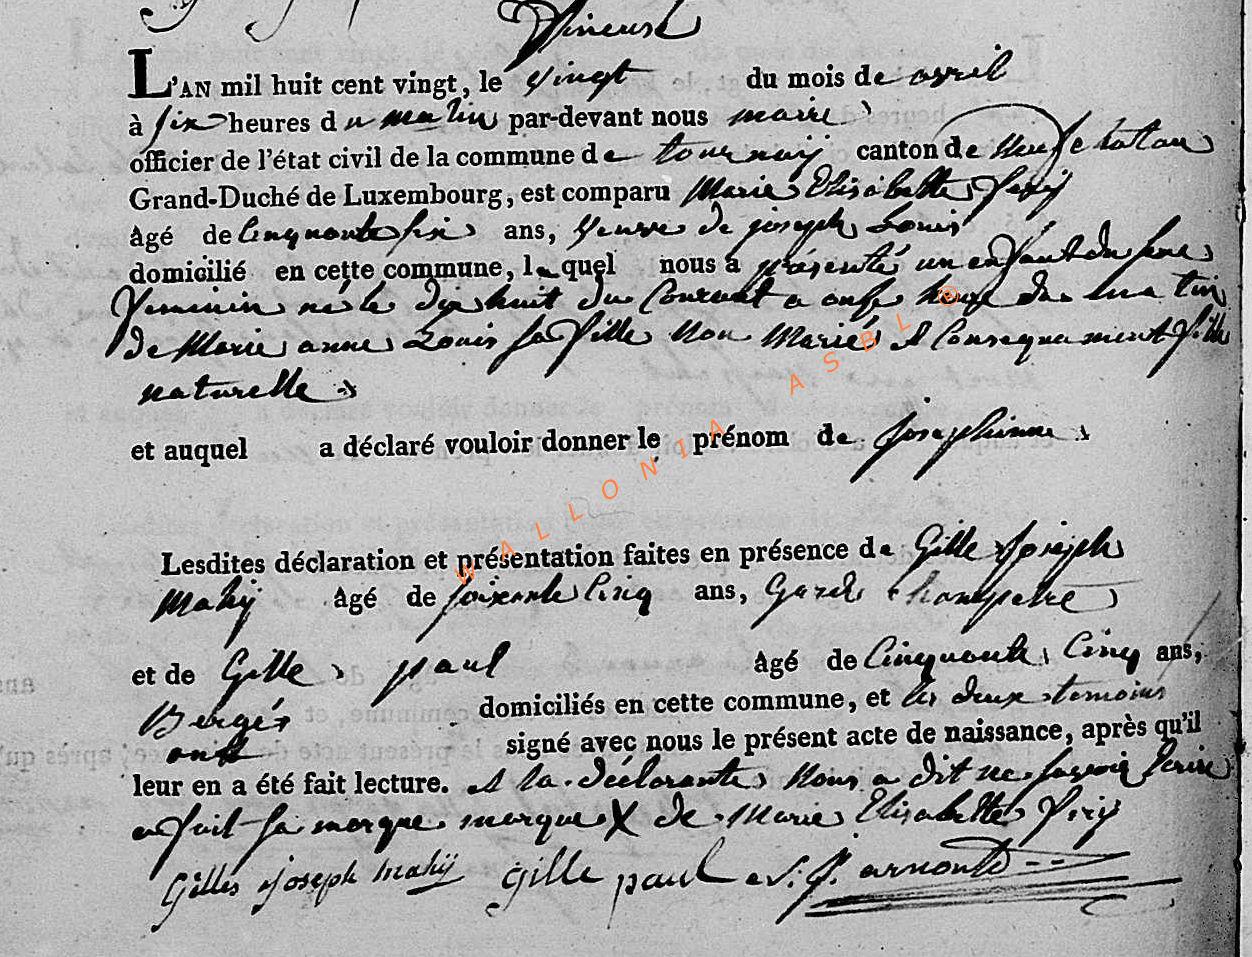 L'AN mil huit cent vingt, le vingt du mois de avril
à six heures du matin par-devant nous maire
officier de l'état civil de la commune de tournay canton de Neufchatau
Grand-Duché de Luxembourg, est comparu Marie Elisabette
âgé de Cinquante six ans, veuve de joseph Louis
domicilié en cette commune, laquel nous a présenté un enfant du sexe
feminin né le dix huit du Courant a onse heure du matin
de Marie anne Louis sa fille non Mariés et Consequament fille
naturelle
et auquel a déclaré vouloir donner le prénom de Josephinne
WALLONIA ASBL ©
Lesdites déclaration et présentation faites en présence de Gille Joseph
Mahy âgé de soixante Cinq ans, Garde Champetre
et de Gille paul âgé de Cinquante Cinq ans,
Bergér domiciliés en cette commune, et les deux temoins
ont signé avec nous le présent acte de naissance, après qu'il
leur en a été fait lecture. et la déclarante nous a dit ne savoir Ecrire
a fait sa marque marque X de Marie Elisabette
Gilles Joseph Mahÿ Gille paul arnould